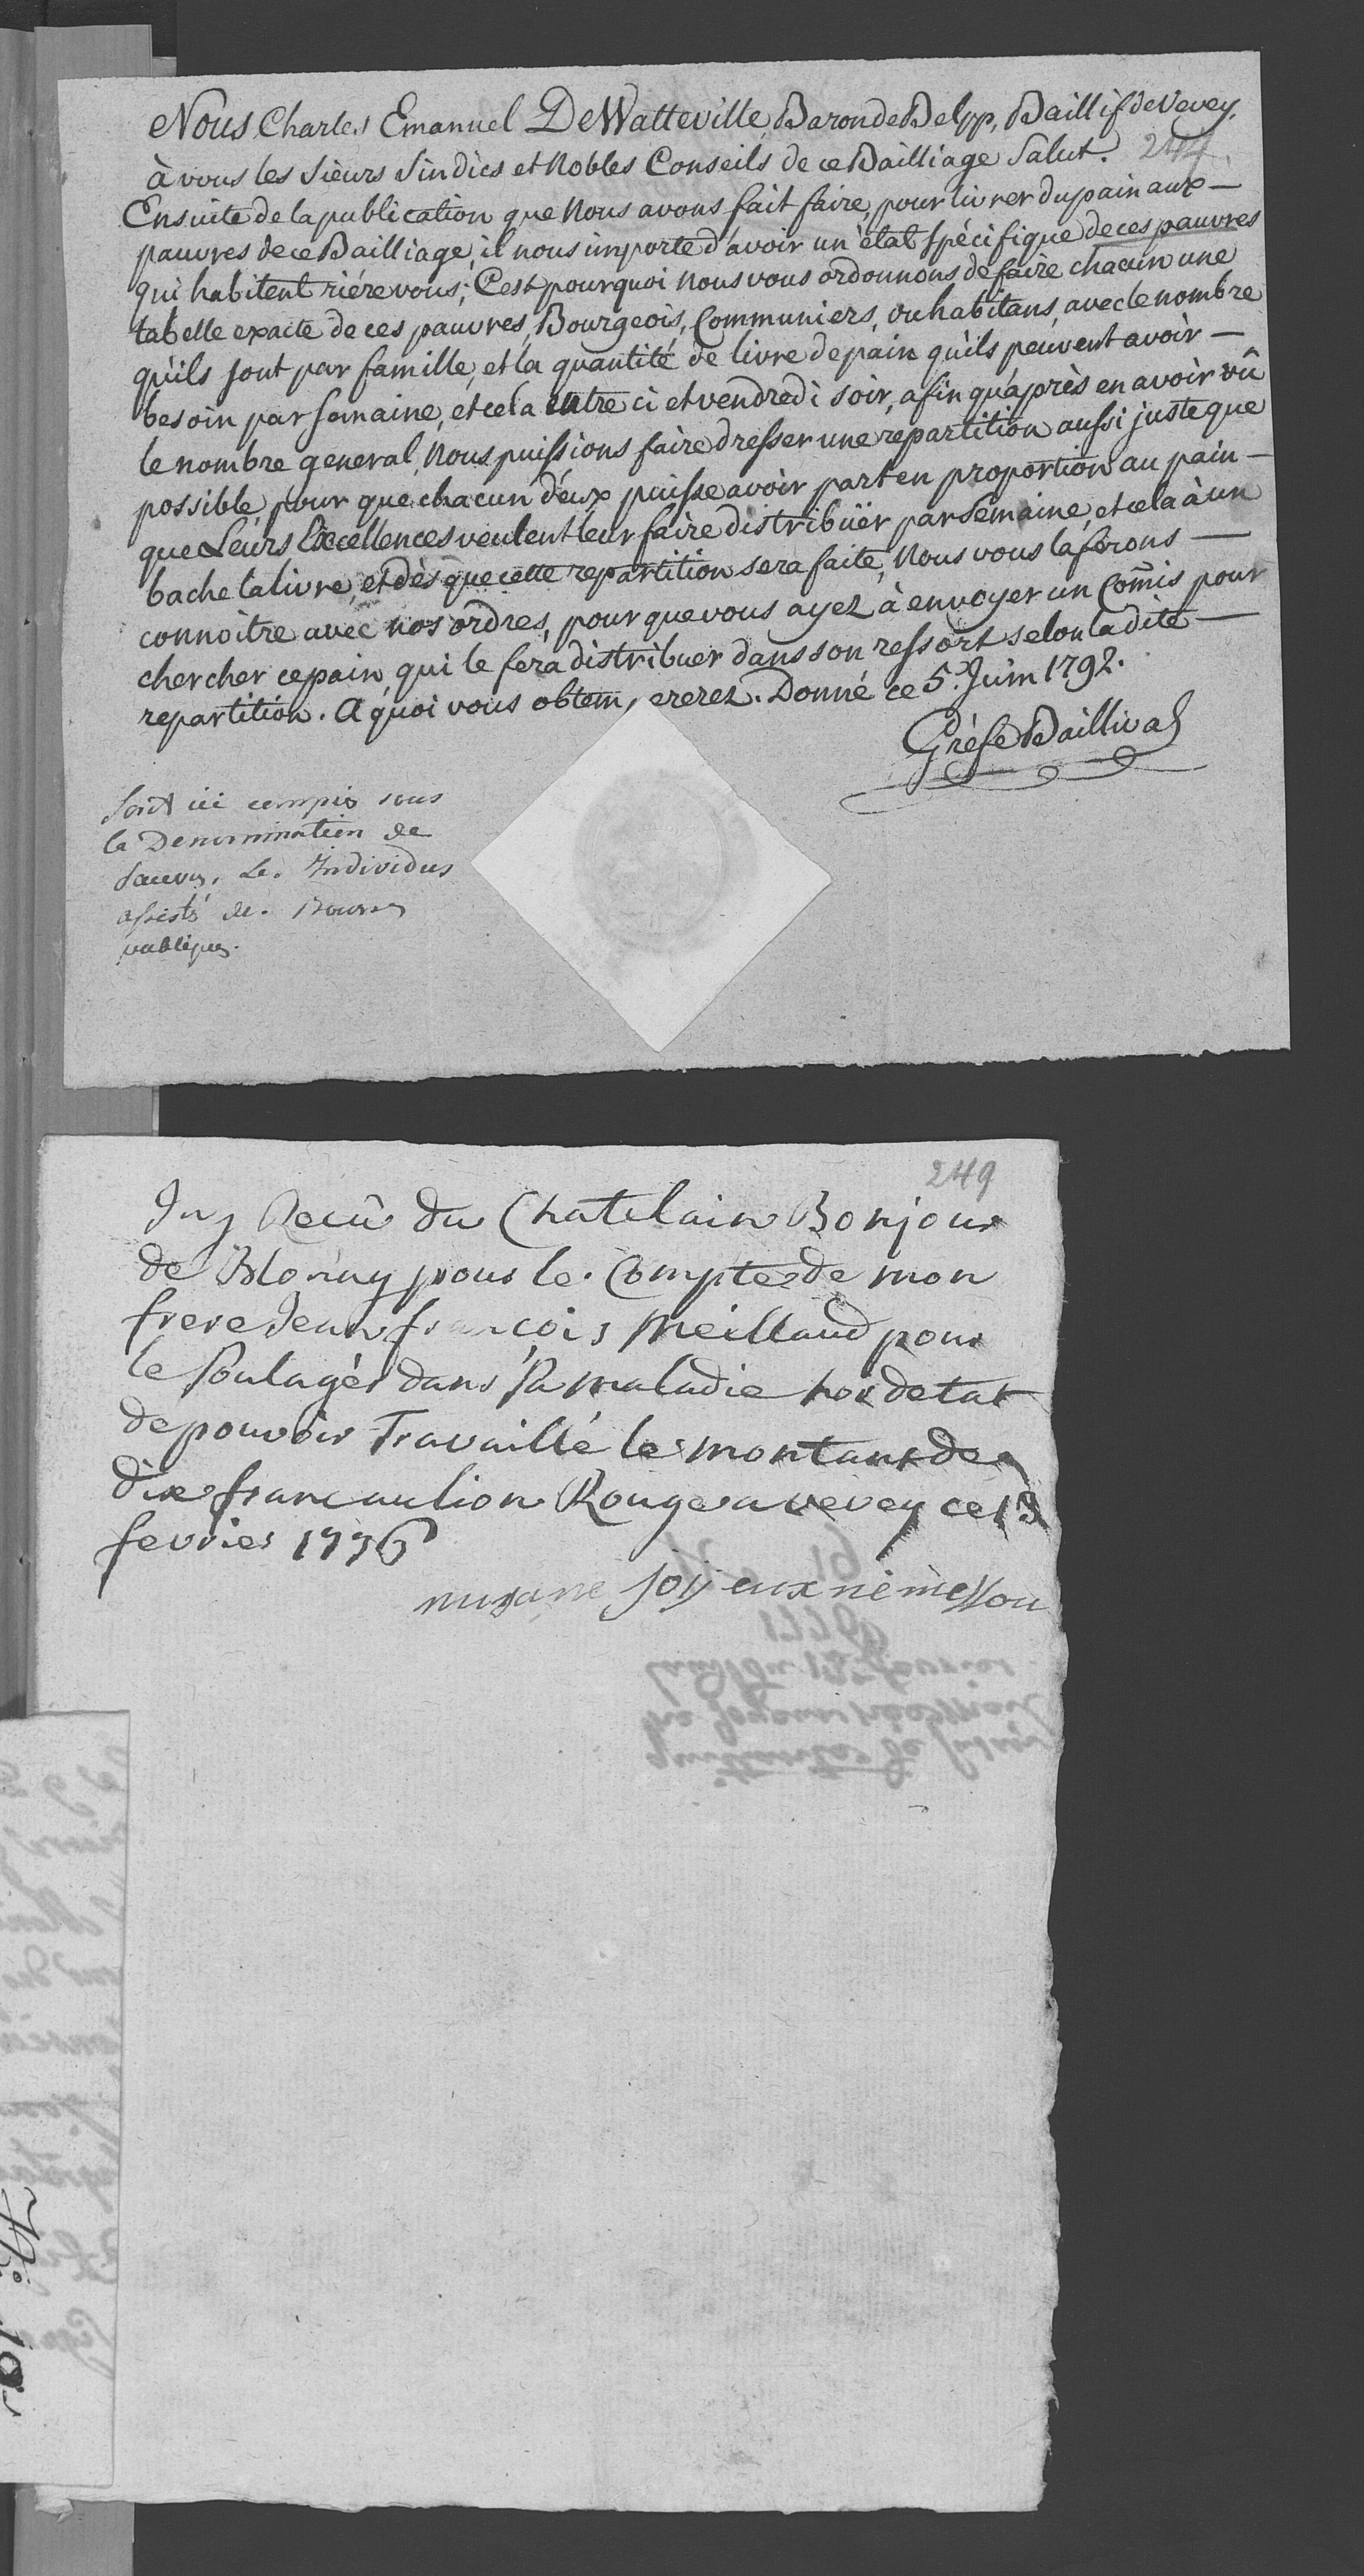 Nous Charles Emanuel DeWatteville, Baron de Belpp, Baillif de Vevey,
à vous les Sieurs Sindics et Nobles Conseils de ce Bailliage Salut. 244.
Ensuite de la publication que Nous avons fait faire, pour livrer du pain aux
pauvres de ce Bailliage, il nous importe d'avoir un état spécifique de ces pauvres
qui habitent riére vous; C'est pourquoi Nous vous ordonnons de faire chacun une
tabelle exacte de ces pauvres, Bourgeois, Communiers, ou habitans, avec le nombre
qu'ils sont par famille, et la quantité de livre de pain qu'ils peuvent avoir
besoin par semaine, et cela entre ci et vendredi soir, afin qu'après en avoir vû
le nombre general, Nous puissions faire dresser une repartition aussi juste que
possible, pour que chacun d'eux puisse avoir part en proportion au pain
que Leurs Excellences veulent leur faire distribüer par Semaine, et cela à un
bache la livre, et dès que cette repartition sera faite, Nous vous la ferons
connoitre avec nos ordres, pour que vous ayez à envoyer un Com̃is pour
chercher ce pain, qui le fera distribuer dans son ressort selon la dite
repartition. A quoi vous obtem, ererez. Donné ce 5.e Juin 1792.
Gréfe Baillival
Sont ici compris sous
la Denomination de
Pauvres, Les Individus
assistés de Bourses
publiques.
249
Reçû du Chatelain Bonjour
de Blonay pour le Compte de mon
frere Jean françois Meillaud pour
le Soulager dans sa maladie hor detat
de pouvoir Travaillé le montant de
dix franc au lion Rouge a vevey ce 13
fevrier 1776
joyeux